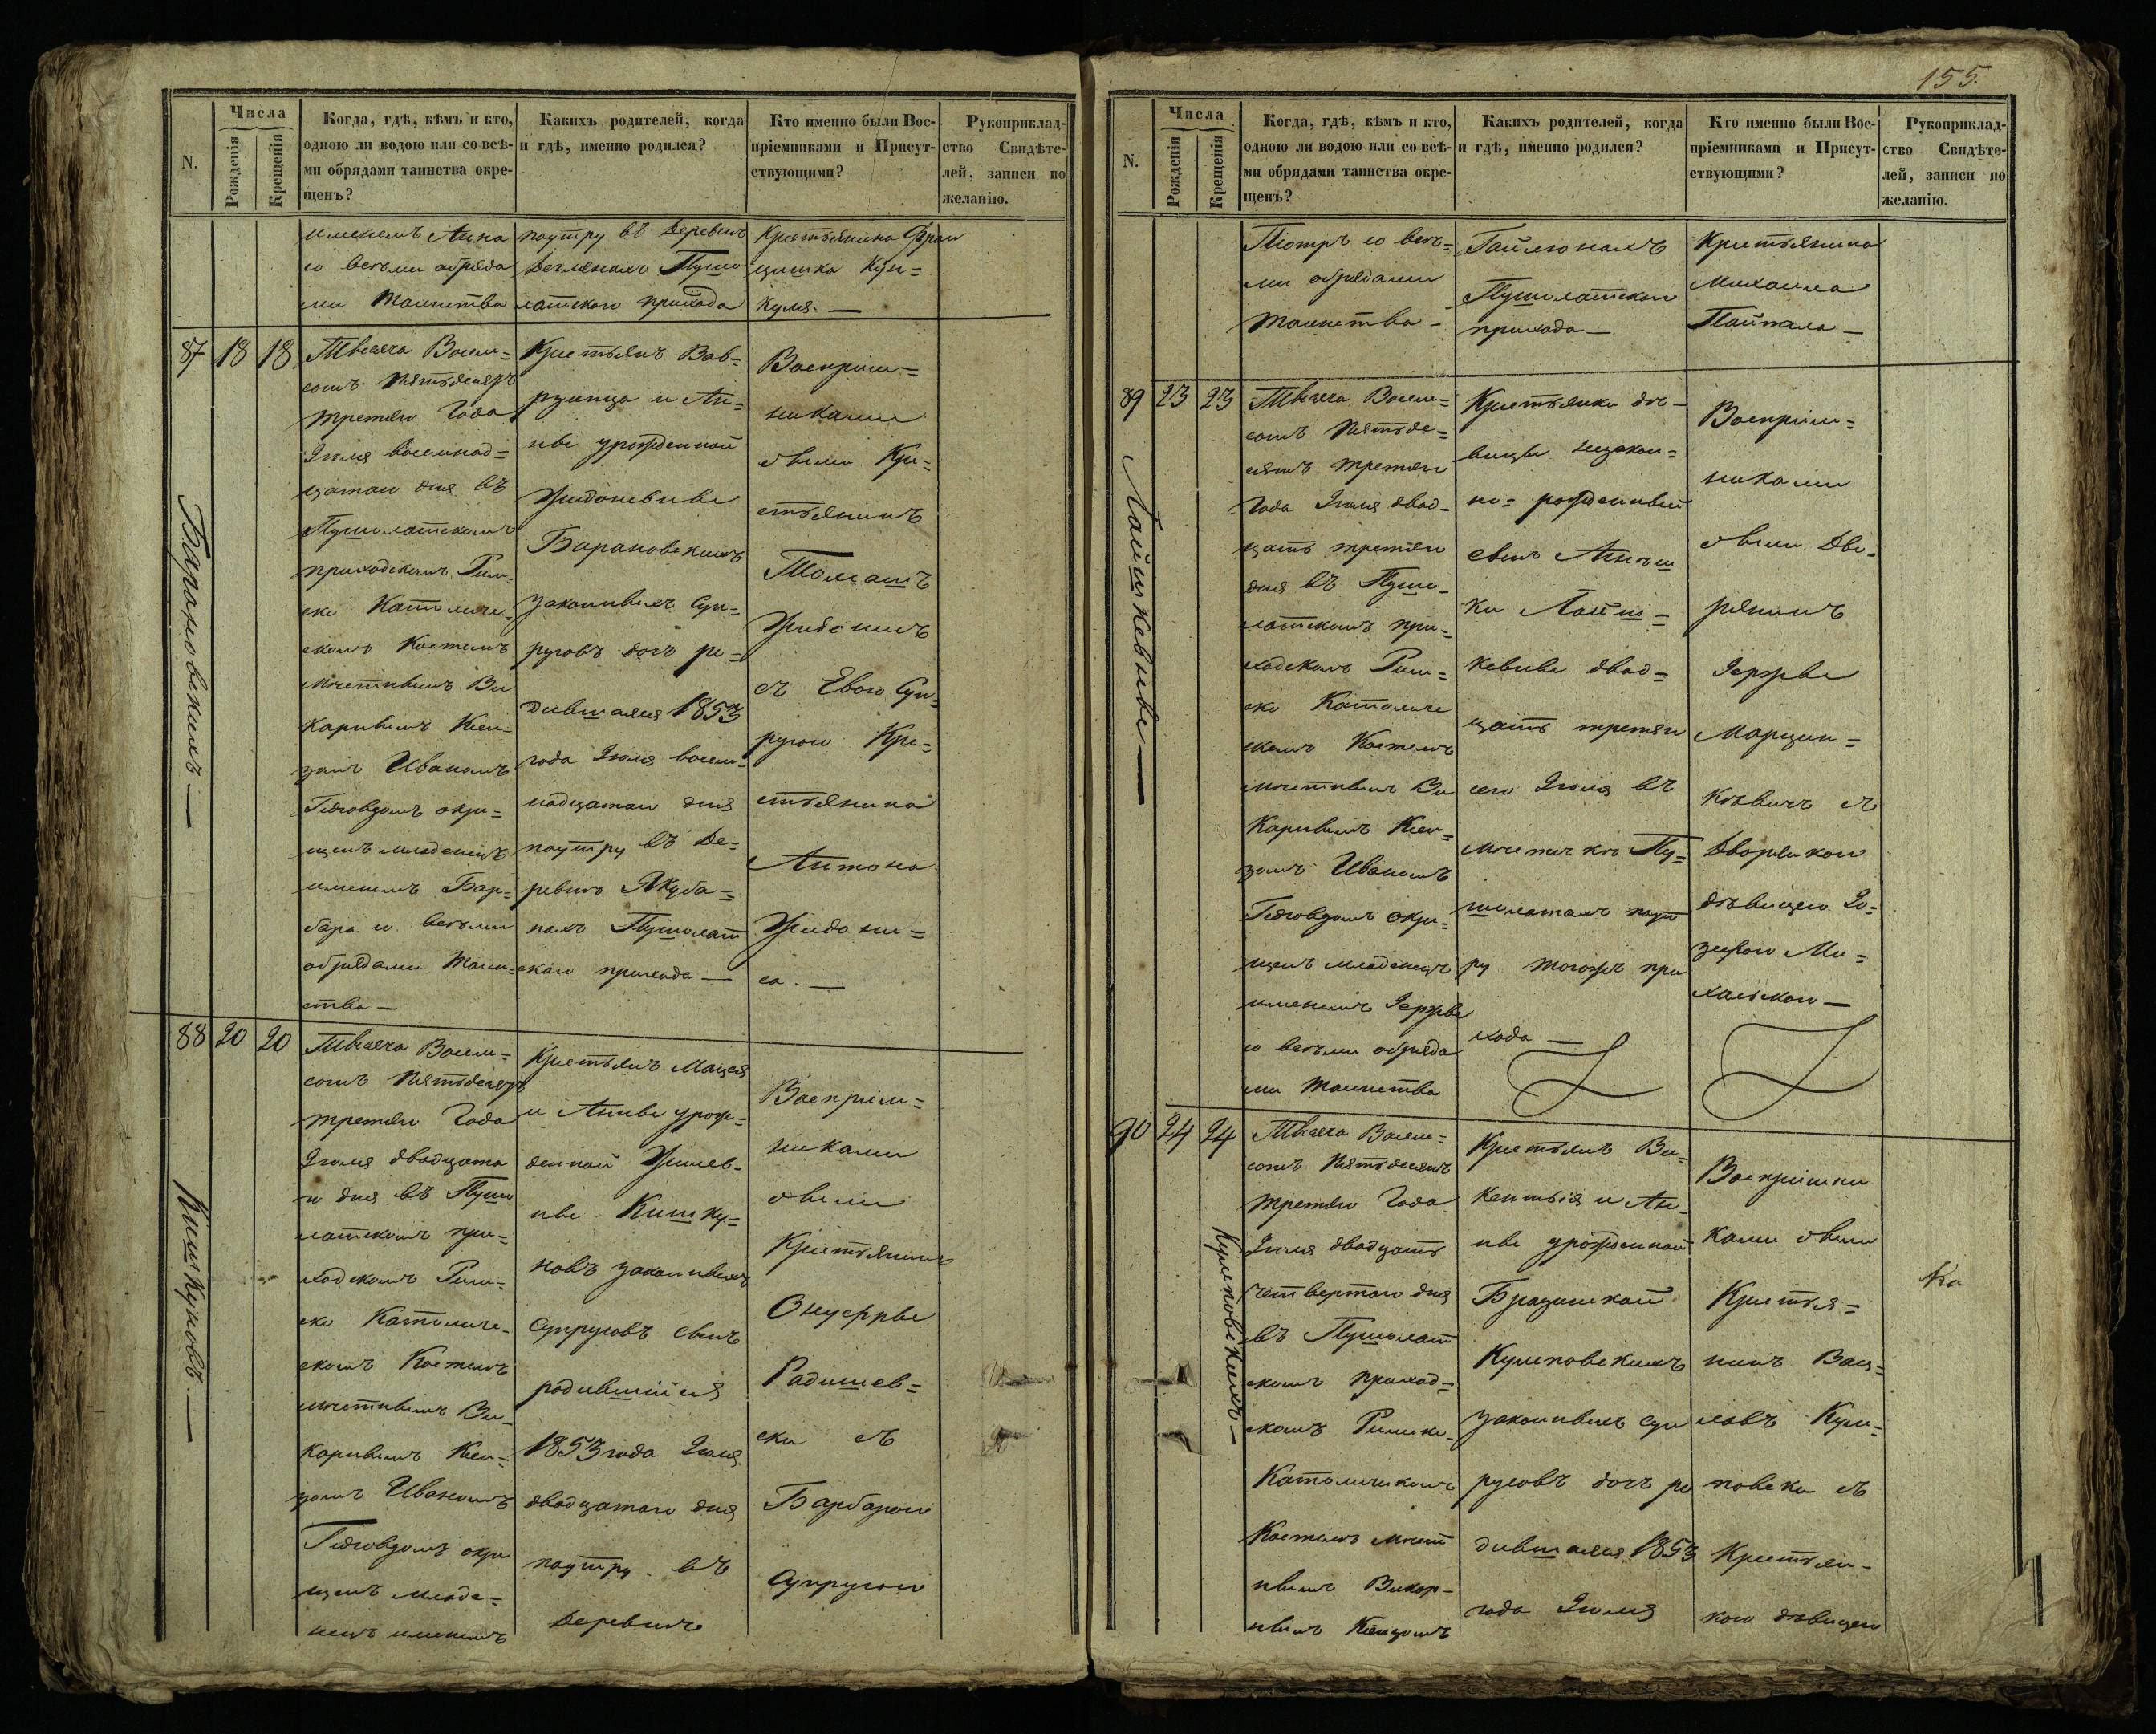 155.
N.
Числа
Рожденія
Крещенія
Когда, гдѣ, кѣмъ и кто,
одною ли водою или со всѣ-
ми обрядами таинства окре-
щенъ?
Какихъ родителей, когда
и гдѣ, именно родился?
Кто именно были Вос-
пріемниками и Присут-
ствующими?
Рукоприклад-
ство Свидѣте-
лей, записи по
желанію.
именемъ Анна
со всѣми обряда
ми Таинства
поутру въ деревнѣ
Пушо-
латскаго прихода
Крестьянина Фран
цишка Кун-
куля. —
87 18 18
Барановскихъ —
Тысяча Восем=
сотъ Пятьдесятъ
третяго Года
Іюля восемнад=
цатаго дня въ
Пушолатскомъ
приходскомъ Рим-
ско Католиче-
скомъ Костелѣ
мѣстнымъ Ви
карнымъ Ксен-
дзомъ Иваномъ
Гедговдомъ окре=
щенъ младенецъ
именемъ Бар-
бара со всѣми
обрядами Таин=
ства —
Крестьянъ Вав-
ржинца и Ан=
ны урожденной
Жидоневны
Барановскихъ
законныхъ Суп-
руговъ дочь ро=
дившаяся 1853
года Іюля восем-
надцатаго дня
поутру въ Де=
ревнѣ Якуба=
нахъ Пушолат
скаго прихода —
Воспріем=
никами
были Кре=
стьянинъ
Томашъ
Жидонисъ
съ Евою Суп-
ругою Кре=
стьянина
Антона
Жидони=
са. —
88 20 20
Кишкуновъ —
Тысяча Восем=
сотъ Пятьдесятъ
третяго Года
Іюля двадцата
го дня въ Пушо
латскомъ при=
ходскомъ Рим-
ско Католиче-
скомъ Костелѣ
мѣстнымъ Ви-
карнымъ Ксен=
дзомъ Иваномъ
Гедговдомъ окре
щенъ младе=
нецъ именемъ
Крестьянъ Мацея
и Анны урож=
денной
ны Кишку=
новъ законныхъ
Супруговъ сынъ
родившійся
1853 года Іюля
двадцатаго дня
поутру въ
Деревнѣ
Воспріем=
никами
были
Крестьянинъ
Онуфры
Радишев=
ски съ
Барбарою
Супругою
N.
Числа
Рожденія
Крещенія
Когда, гдѣ, кѣмъ и кто,
одною ли водою или со всѣ-
ми обрядами таинства окре-
щенъ?
Какихъ родителей, когда
и гдѣ, именно родился?
Кто именно были Вос-
пріемниками и Присут-
ствующими?
Рукоприклад-
ство Свидѣте-
лей, записи по
желанію.
Піотръ со всѣ=
ми обрядами
Таинства —
Гайлюнахъ
Пушолатскаго
прихода —
Крестьянина
Михаила
Пайпала —
89 23 23
Лашкевичъ —
Тысяча Восем=
сотъ Пятьде=
сятъ третяго
Года Іюля двад-
цать третяго
дня въ Пушо-
латскомъ при=
ходскомъ Рим=
ско Католиче
скомъ Костелѣ
мѣстнымъ Ви
карнымъ Ксен=
дзомъ Иваномъ
Гедговдомъ окре-
щенъ младенецъ
именемъ Іержы
со всѣми обряда
ми Таинства
Крестьянки дѣ-
вицы незакон=
но= рожденный
сынъ
двад=
цать третяго
сего Іюля въ
мѣстечкѣ Пу=
шолатахъ поут
ру тогожъ при
хода —
Воспріем=
никами
были Дво-
рянинъ
Іержы
Марцин=
кѣвичъ съ
Дворянкою
дѣвицею Іо=
зефою Ми=
хальскою —
90 24 24
Кулповскихъ —
Тысяча Восем=
сотъ Пятьдесятъ
третяго Года
Іюля двадцать
четвертаго дня
въ Пушолат
скомъ приход=
скомъ Римско-
Католическомъ
Костелѣ мѣст
нымъ Викар-
нымъ Ксендзомъ
Крестьянъ Ви=
кентыя и Ан-
ны урожденной
законныхъ Суп
руговъ дочь ро
дившаяся 1853
года Іюля
Воспріемни
ками были
Крестья=
нинъ Вац=
лавъ
съ
Крестьян-
кою дѣвицею